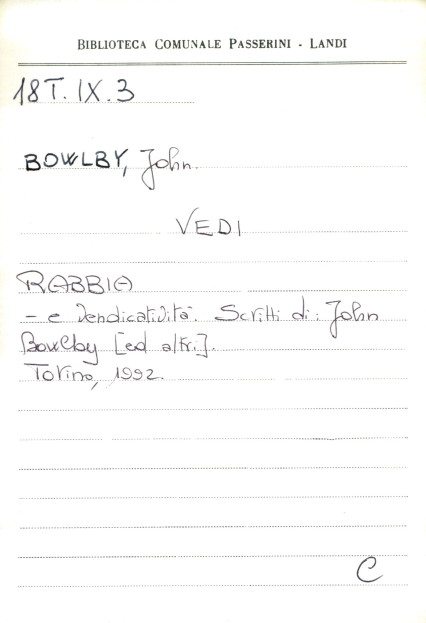 BIBLIOTECA COMUNALE PASSERINI - LANDI
18T.IX.3
BOWLBY, John.
VEDI
RABBIA
- e vendicatività. Scritti di: John
Bowlby [ed altri].
Torino, 1992.
C